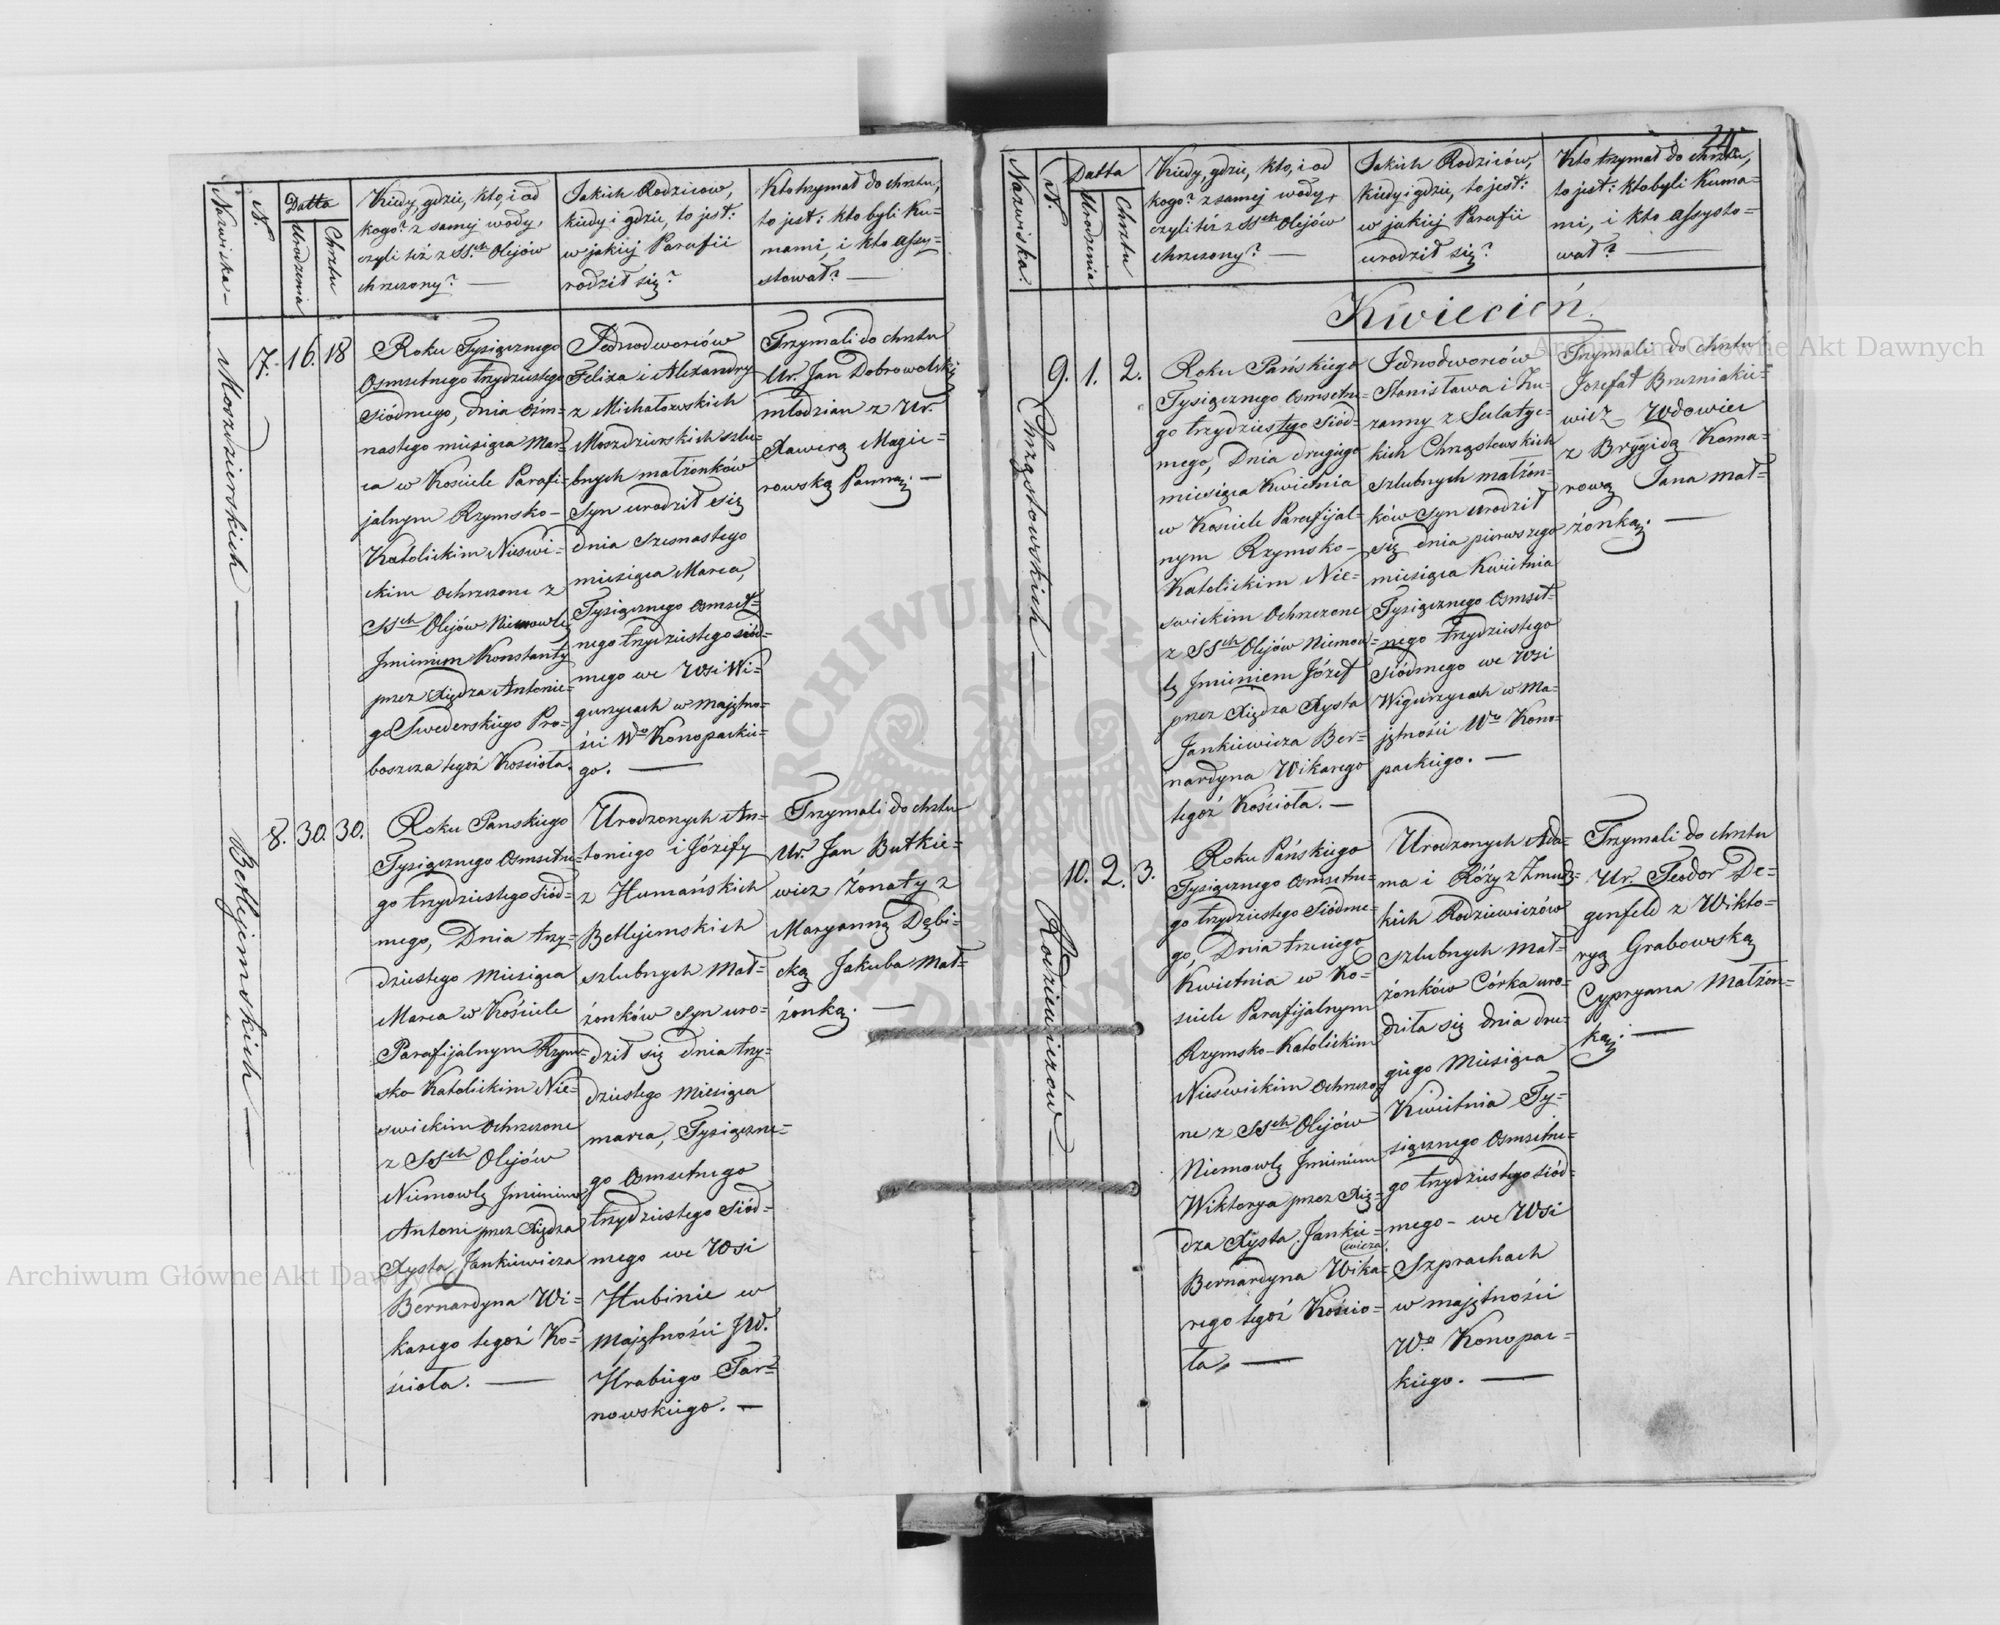 Nazwiska
N.
Datta
Urodzenia
Chrztu
Kiedy, gdzie, kto, i od
kogo? z samej wody,
czyli też z SS.ch Olejów
chrzczony? —
Jakich Rodziców,
kiedy i gdzie, to jest:
w jakiej Parafii
rodził się?
Kto trzymał do chrztu,
to jest: kto byli Ku-
mami, i kto assy-
stował? —
Mozdzierskich
7. 16. 18
Roku Tysiącznego
Osmsetnego trzydziestego
siódmego, dnia ośm-
nastego miesiąca Mar-
ca w Kościele Parafi-
jalnym Rzymsko-
Katolickim Nieswi-
ckim ochrzczone z
SSch Olejów Niemowle
Jmieniem Konstanty
przez Xiędza Antonie-
go Swederskiego Pro-
boszcza tegoż Kościoła.
Jednodworców
Felixa i Alexandry
z Michałowskich
Mozdzierskich szlu-
bnych małżonków
Syn urodził się
dnia szesnastego
miesiąca Marca,
Tysiącznego osmset-
nego trzydziestego siód-
mego we Wsi Wi-
gurzycach w majętno-
ści Wo Konopackie-
go. —
Trzymali do chrztu
Ur. Jan Dobrowolski
młodzian z Ur.
Xawerą Magie-
rowską Panną. —
Betlejemskich
8. 30. 30.
Roku Panskiego
Tysiącznego Osmsetne-
go trzydziestego Siód-
mego, Dnia trzy-
dziestego Miesiąca
Marca w Kościele
Parafijalnym Rzym-
sko Katolickim Nie-
swickim ochrzczone
z SSch Olejów
Niemowlę Jmieniem
Antoni przez Xiędza
Xysta Jankiewicza
Bernardyna Wi-
karego tegoż Ko-
ścioła. —
Urodzonych An-
toniego i Józefy
z Humańskich
Betlejemskich
szlubnych Mał-
żonków syn uro-
dził się dnia trzy-
dziestego Miesiąca
marca, Tysiączne-
go Osmsetnego
trzydziestego Siód-
mego we Wsi
Hubinie w
Majętności JW.
Hrabiego Tar-
nowskiego. —
Trzymali do chrztu
Ur. Jan Butkie-
wicz Żonaty z
Maryanną Dębi-
cką Jakuba Mał-
żonką. —
Nazwiska.
N.
Datta
Urodzenia
Chrztu
Kiedy, gdzie, kto, i od
kogo? z samej wody,
czyli też z SSch Olejów
chrzczony? —
Jakich Rodziców,
kiedy i gdzie, to jest:
w jakiej Parafii
urodził się?
Kto trzymał do chrztu,
to jest: kto byli Kuma-
mi, i kto assysto-
wał? —
Kwiecień.
Chrząstowskich
9. 1. 2.
Roku Pańskiego
Tysiącznego Osmsetne-
go trzydziestego Siód-
mego, Dnia drugiego
miesiąca Kwietnia
w Kościele Parafijal-
nym Rzymsko-
Katolickim Nie-
swickim Ochrzczone
z SSch Olejów Niemow-
lę Jmieniem Józef
przez Xiędza Xysta
Jankiewicza Ber-
nardyna Wikarego
tegoż Kościoła. —
Jednodworców
Stanisława i Zu-
zanny z Sulatyc-
kich Chrząstowskich
szlubnych małżon-
ków Syn urodził
się dnia pierwszego
miesiąca Kwietnia
Tysiącznego Osmset-
nego trzydziestego
siódmego we Wsi
Wigurzycach w Ma-
jętności Wo Kono-
packiego. —
Trzymali do chrztu
Jozefat Brezniakie-
wicz Wdowiec
z Brygidą Koma-
rową Jana mał-
żonką. —
Rodziewiczów
10. 2. 3.
Roku Pańskiego
Tysiącznego Osmsetne-
go trzydziestego Siódme-
go, Dnia trzeciego
Kwietnia w Ko-
sciele Parafijalnym
Rzymsko-Katolickim
Nieswickim Ochrzczo-
ne z SSch Olejów
Niemowlę Jmieniem
Wiktorya przez Xię-
dza Xysta Jankie-
wicza
Bernardyna Wika-
rego tegoż Kościo-
ła. —
Urodzonych Ada-
ma i Róży z Żmudz-
kich Rodziewiczów
szlubnych Mał-
żonków Córka uro-
dziła się dnia dru-
giego Miesiąca
Kwietnia Ty-
siącznego Osmsetne-
go trzydziestego siód-
mego - we Wsi
Szprachach
w majętności
Wo Konopac-
kiego. —
Trzymali do chrztu
Ur. Teodor De-
genfeld z Wikto-
ryą Grabowską
Cypryana Małżon-
ką. —
Archiwum Główne Akt Dawnych
Archiwum Główne Akt Dawnych